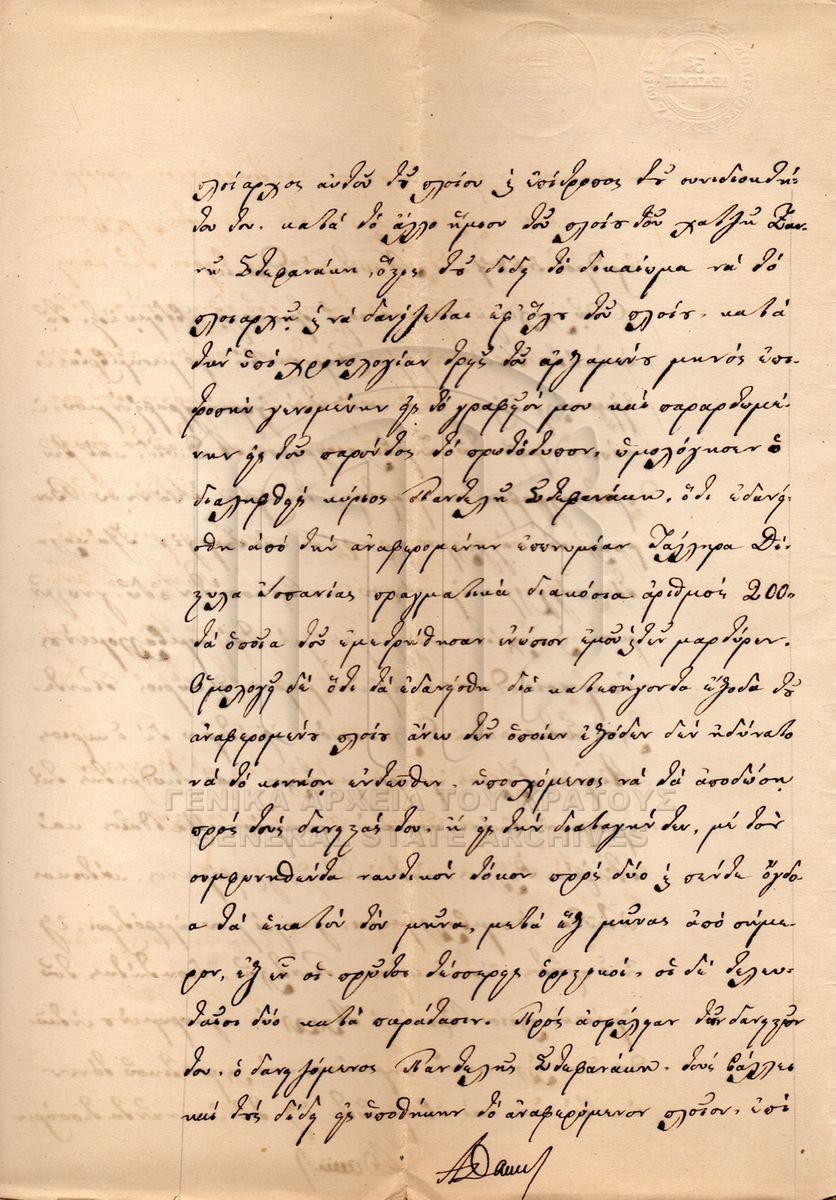 πλοίαρχος αὐτοῦ τοῦ πλοίου ἢ ἐπίτροπος τοῦ συνιδιοκτή-
του του, κατὰ τὸ ἄλλο ἥμισυ τοῦ πλοίου τοῦ χατζῆ Ζαν-
νῆ Στεφανάκη, ὅστις τοῦ δίδει τὸ δικαίωμα νὰ τὸ
πλοιαρχῇ ἢ νὰ δανείζεται ἐφ' ὅλου τοῦ πλοίου, κατὰ
τὴν ὑπὸ χρονολογίαν τρεῖς τοῦ μηνὸς ἐπι-
τροπὴν γενομένην εἰς τὸ γραφεῖόν μου καὶ παραρτωμέ-
νην εἰς τοῦ παρόντος τὸ πρωτότυπον, ὡμολόγησεν ὁ
διαληφθεὶς κύριος Παντελῆς Στεφανάκη, ὅτι ἐδανεί-
σθη ἀπὸ τὴν ἀναφερομένην ἐπωνυμίαν Τάλληρα Δί-
στυλα Ἱσπανίας πραγματικὰ διακόσια ἀριθμὸς 200,
τὰ ὁποῖα τοῦ ἐμετρήθησαν ἐνώπιον ἐμοῦ καὶ τῶν μαρτύρων.
Ὁμολογεῖ δὲ ὅτι τὰ ἐδανείσθη διὰ κατεπείγοντα ἔξοδα τοῦ
ἀναφερομένου πλοίου ἄνευ τῶν ὁποίων ἐξόδων δὲν ἠδύνατο
νὰ τὸ κινήσῃ ἐντεῦθεν, ὑποσχόμενος νὰ τὰ ἀποδώσῃ
πρὸς τοὺς δανειστάς του, ἢ εἰς τὴν διαταγήν των, μὲ τὸν
συμφωνηθέντα ναυτικὸν τόκον πρὸς δύο καὶ πέντε ὄγδο-
α τὰ ἑκατὸν τὸν μῆνα, μετὰ ἓξ μῆνας ἀπὸ σήμε-
ρον, ἐξ ὧν οἱ πρῶτοι τέσσαρες, οἱ δὲ τελευ-
ταῖοι δύο κατὰ παράτασιν. Πρὸς ἀσφάλειαν τῶν δανειστῶν
του, ὁ δανειζόμενος Παντελῆς Στεφανάκη, τοὺς βάλλει
καὶ τοῖς δίδει εἰς ὑποθήκην τὸ ἀναφερόμενον πλοῖον, ἐπὶ
ΓΕΝΙΚΑ ΑΡΧΕΙΑ ΤΟΥ ΚΡΑΤΟΥΣ
GENERAL STATE ARCHIVES